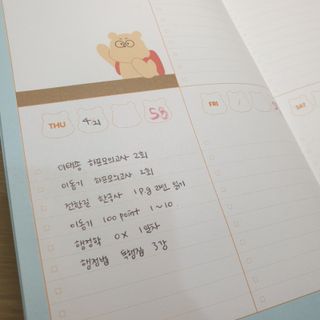 THU 4회 58
FRI 1
SAT
이태종 하프모의고사 2회
이동기 하프모의고사 2회
전한길 한국사 1p.g 라인 읽기
이동기 100 point 1~10
행정학 OX 1일차
행정법 특행집 3강